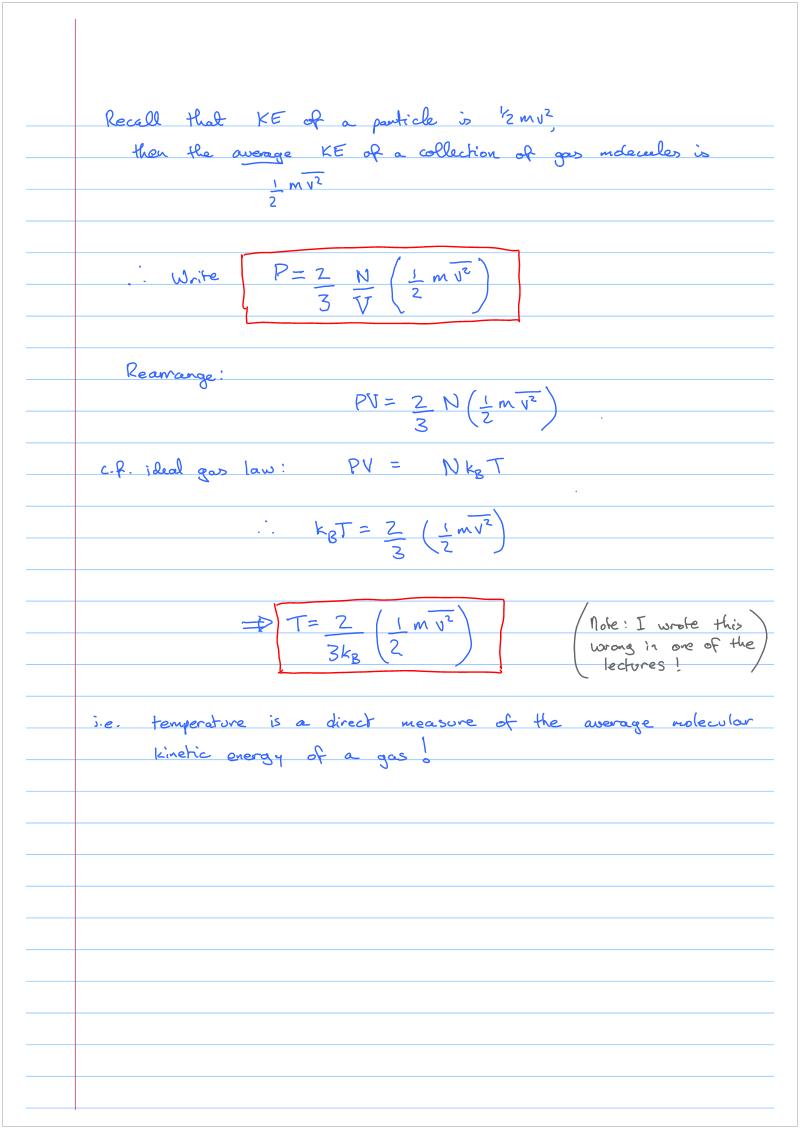 Recall that KE of a particle is ½mv²,
then the average KE of a collection of gas molecules is
1/2 m v̅²̅
∴ Write P = 2/3 N/V (1/2 m v̅²̅)
Rearrange:
PV = 2/3 N (1/2 m v̅²̅)
c.f. ideal gas law: PV = N k_B T
∴ k_B T = 2/3 (1/2 m v̅²̅)
⇒ T = 2/3k_B (1/2 m v̅²̅)
(Note: I wrote this
wrong in one of the
lectures!)
i.e. temperature is a direct measure of the average molecular
kinetic energy of a gas!